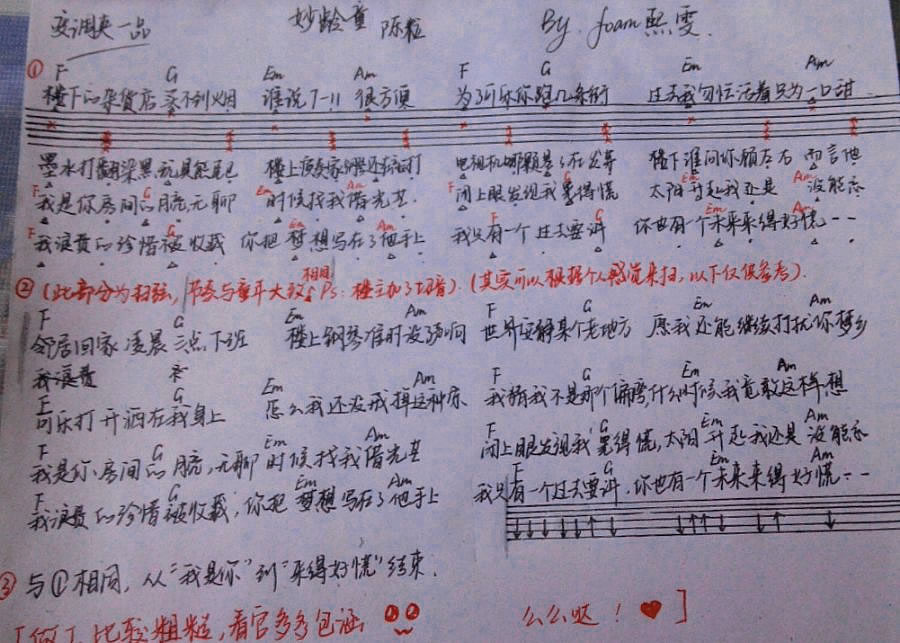 变调夹一品 妙龄童 陈粒 By. foam熙雯.
① F G Em Am F G Em Am
楼下的杂货店买不到火烟 谁说7-11很方便 为了可乐你跑几条街 过去我匆忙活着只为一口甜
墨水打翻染黑玩具熊尾巴 楼上 还在 打 电视机 在发募 楼下谁问你顾左右而言他
F G Em Am F G Em Am
我是你房间的月亮,无聊时候找我借光芒. 闭上眼发现我累得慌 太阳升起我还是没能忘
F G Em Am F G Em Am
我浪费的珍惜被收藏 你把梦想写在了他手上 我只有一个过去要讲 你也有一个未来来得好慌--
② (此部分为扫弦, 节奏与童年大致相同. Ps: 楼主加了切音). (其实可以根据个人感觉来扫, 以下仅供参考).
F G Em Am F G Em Am
邻居回家凌晨三点下班 楼上钢琴准时没了声响 世界变解某个老地方 愿我还能继续打扰你梦乡
我浪费
F G Em Am F G Em Am
可乐打开洒在我身上 怎么我还没戒掉这种床 我猜我不是那个偏离,什么时候我竟敢这样想
F G Em Am F G Em Am
我是你房间的月亮,无聊时候找我借光芒 闭上眼发现我累得慌,太阳升起我还是没能忘
F G Em Am F G Em Am
我浪费的珍惜被收藏,你把梦想写在了他手上 我只有一个过去要讲.你也有一个未来来得好慌--
③ 与①相同, 从"我是你"到"来得好慌"结束.
[做了比较粗糙,看官多多包涵 么么哒!]